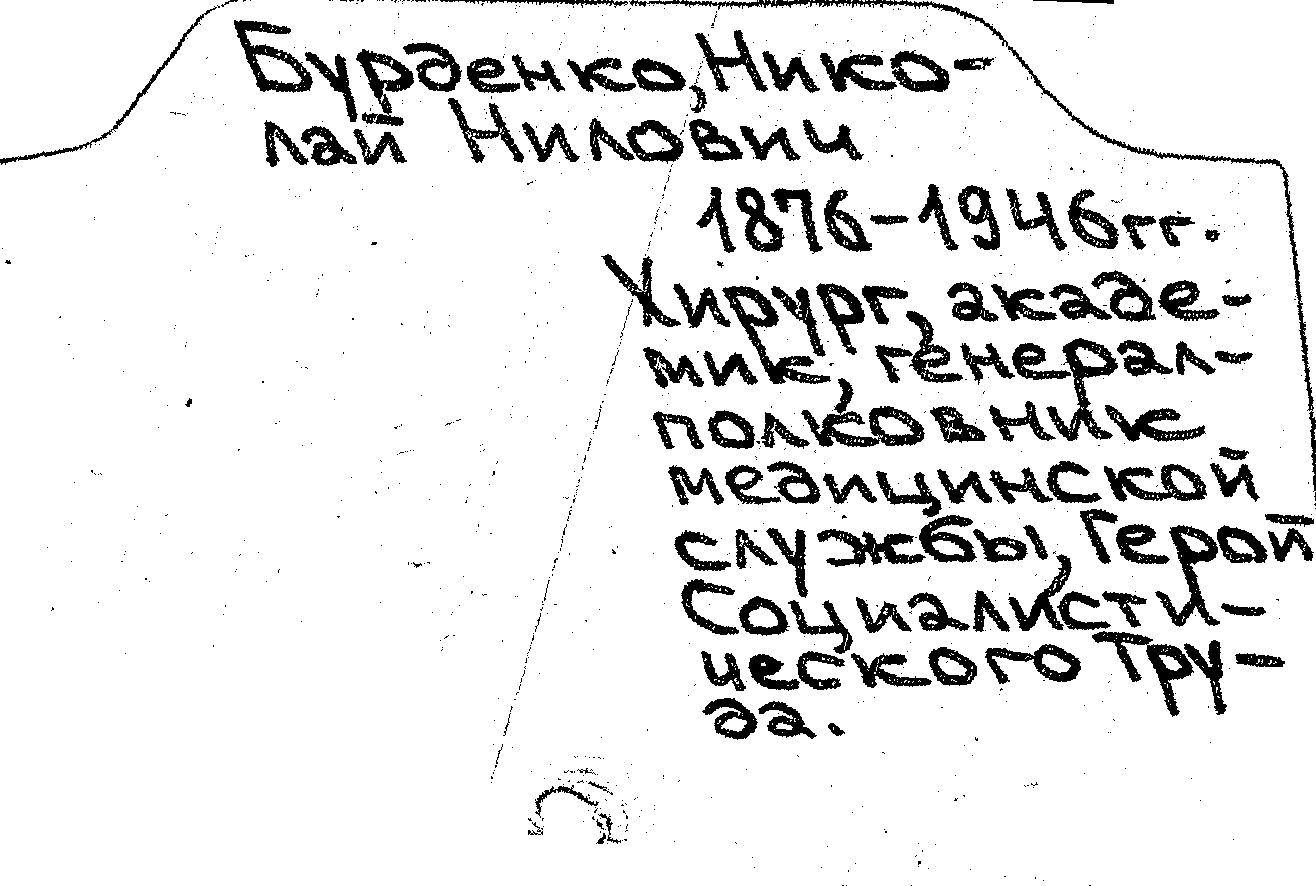 Бурденко, Нико-
лай Нилович
1876-1946гг.
Хирург, акаде-
мик, генерал-
полковник
медицинской
службы, Герой
Социалисти-
ческого Тру-
да.